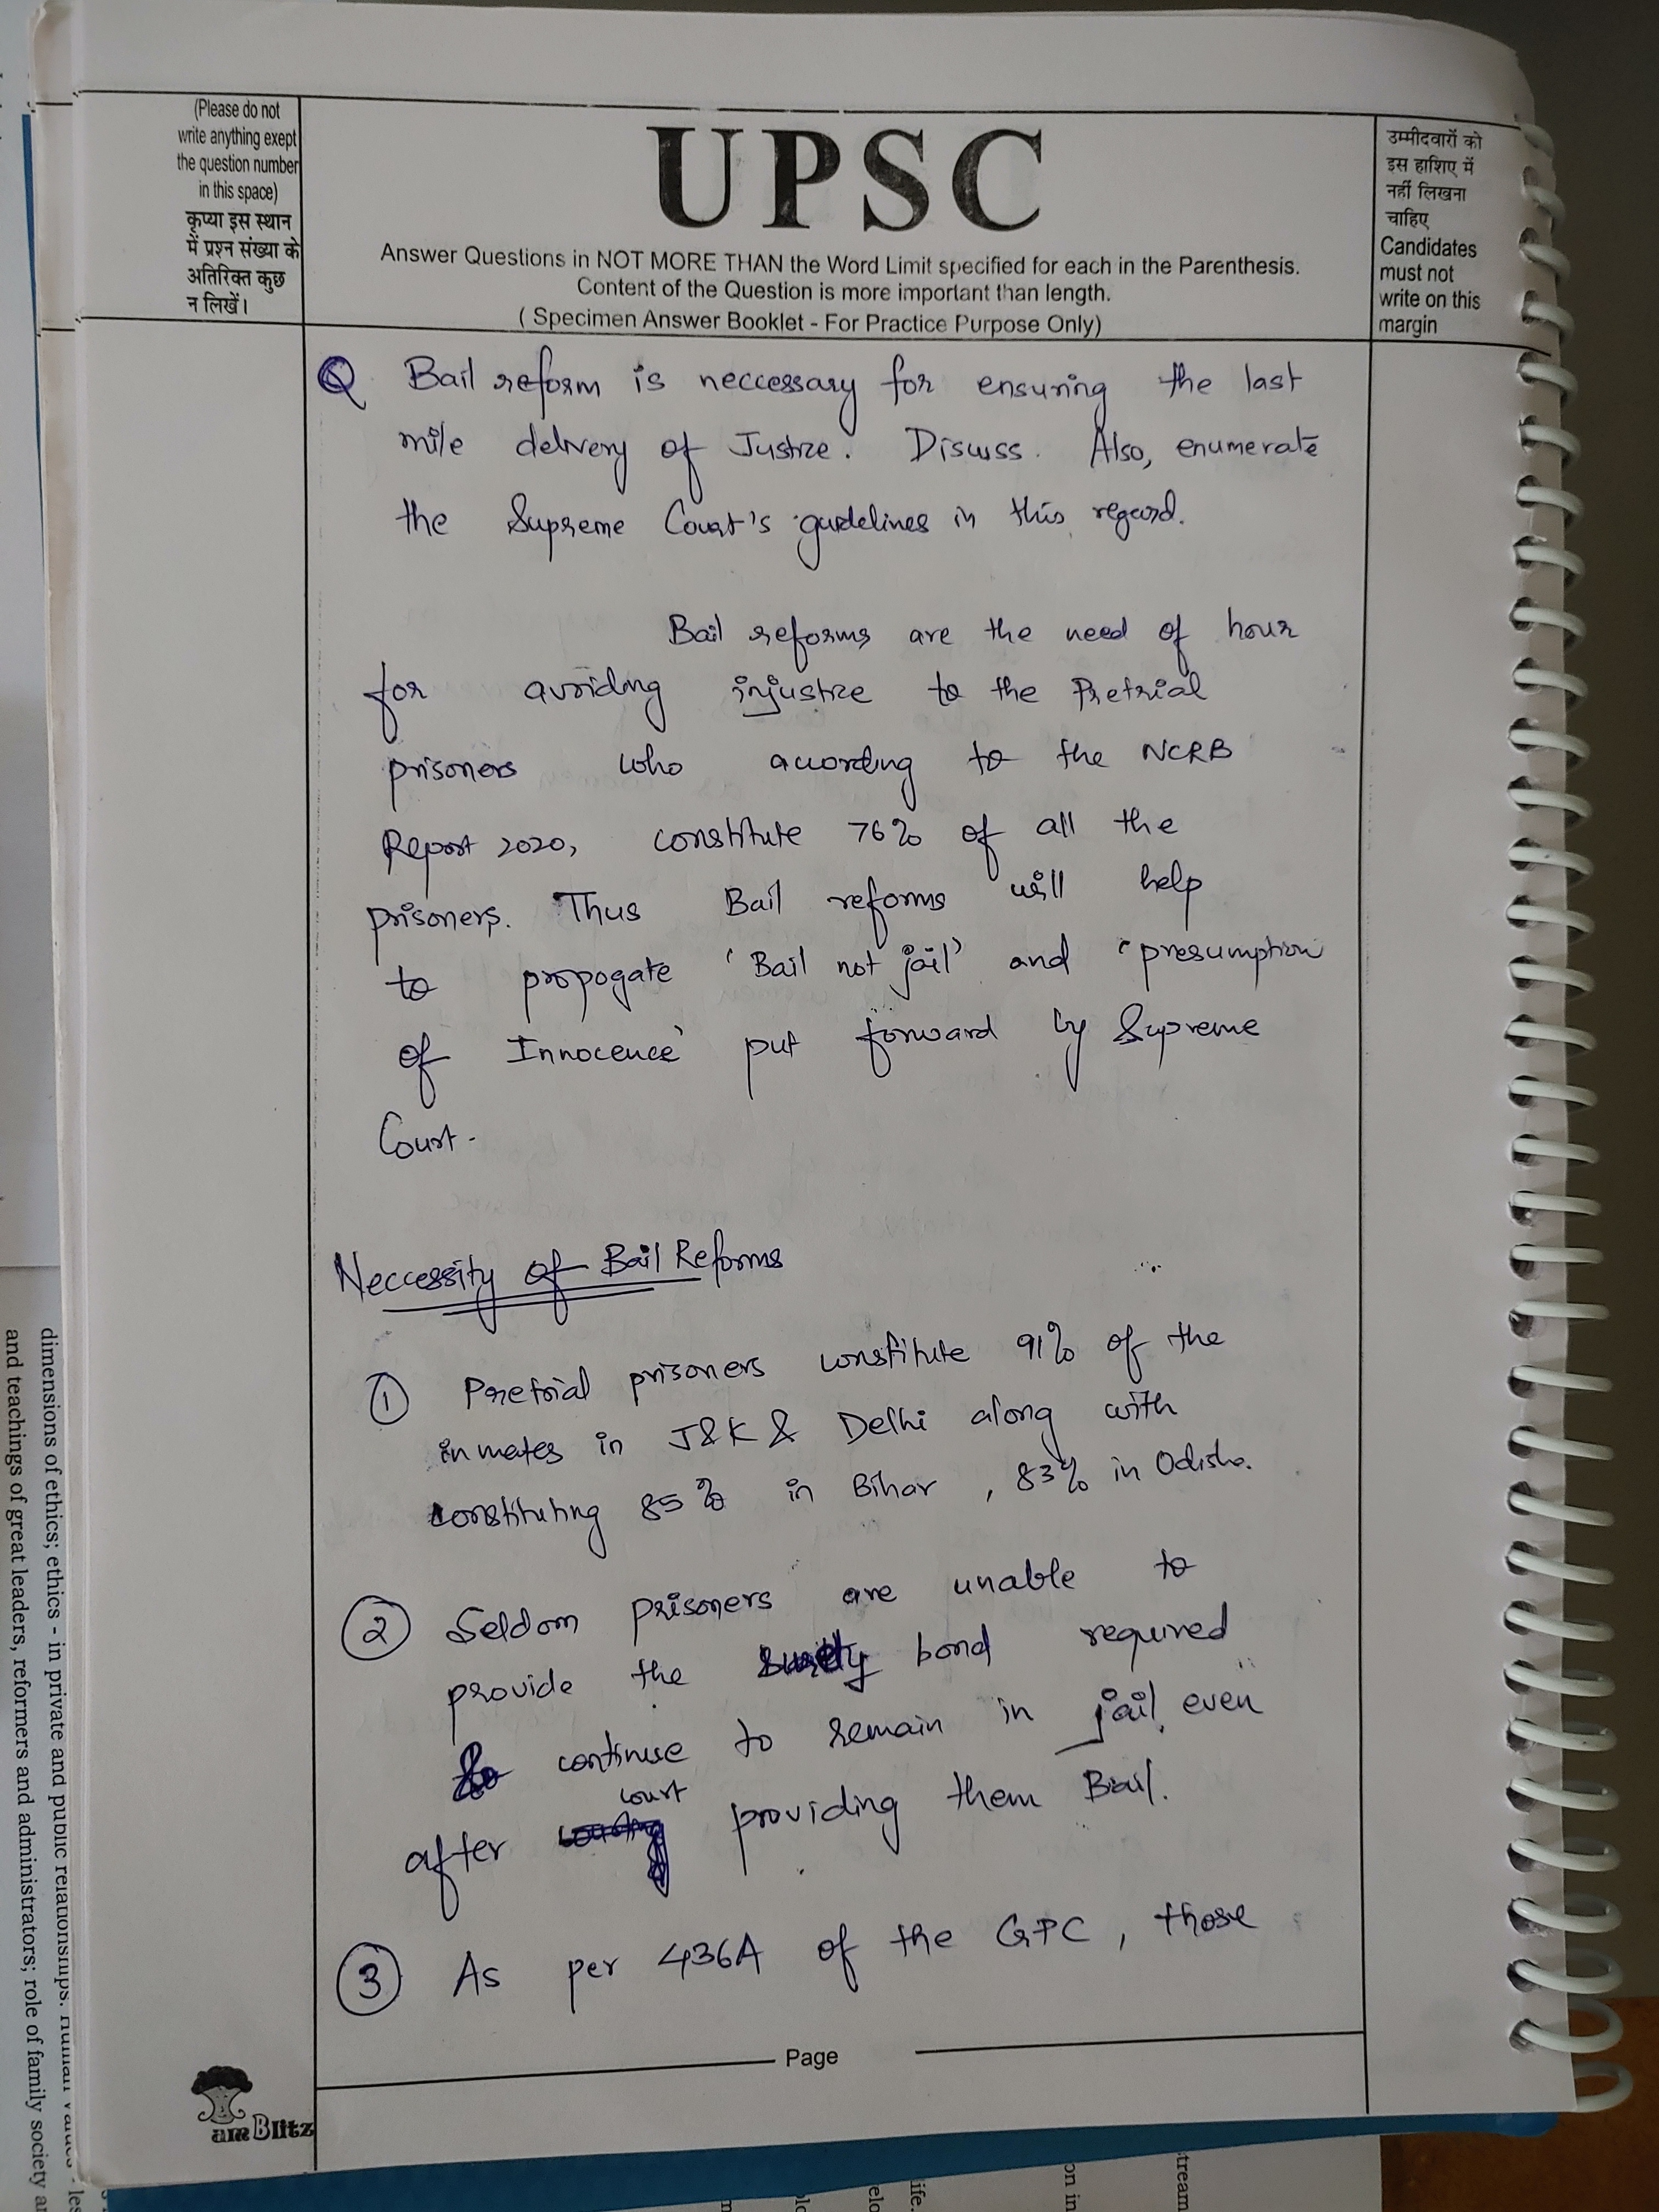 (Please do not
write anything exept
the question number
in this space)
कृप्या इस स्थान
में प्रश्न संख्या के
अतिरिक्त कुछ
न लिखें।
UPSC
Answer Questions in NOT MORE THAN the Word Limit specified for each in the Parenthesis.
Content of the Question is more important than length.
( Specimen Answer Booklet - For Practice Purpose Only)
उम्मीदवारों को
इस हाशिए में
नहीं लिखना
चाहिए
Candidates
must not
write on this
margin
Q Bail reform is neccessary for ensuring the last
mile delivery of Justice. Discuss. Also, enumerate
the Supreme Court's guidelines in this regard.
Bail reforms are the need of hour
for avoiding injustice to the Pretrial
prisoners who according to the NCRB
Report 2020, constitute 76% of all the
prisoners. Thus Bail reforms will help
to propogate 'Bail not jail' and 'presumption
of Innocence' put forward by Supreme
Court.
Neccessity of Bail Reforms
① Pretrial prisoners constitute 91% of the
inmates in J&K & Delhi along with
constituting 85% in Bihar, 83% in Odisha.
② Seldom prisoners are unable to
provide the bond required
continue to remain in jail even
after court providing them Bail.
③ As per 436A of the CrPC, those
Page
am Blitz
dimensions of ethics; ethics - in private and public relationships. Human Values - les
and teachings of great leaders, reformers and administrators; role of family society a
life.
on in
tream